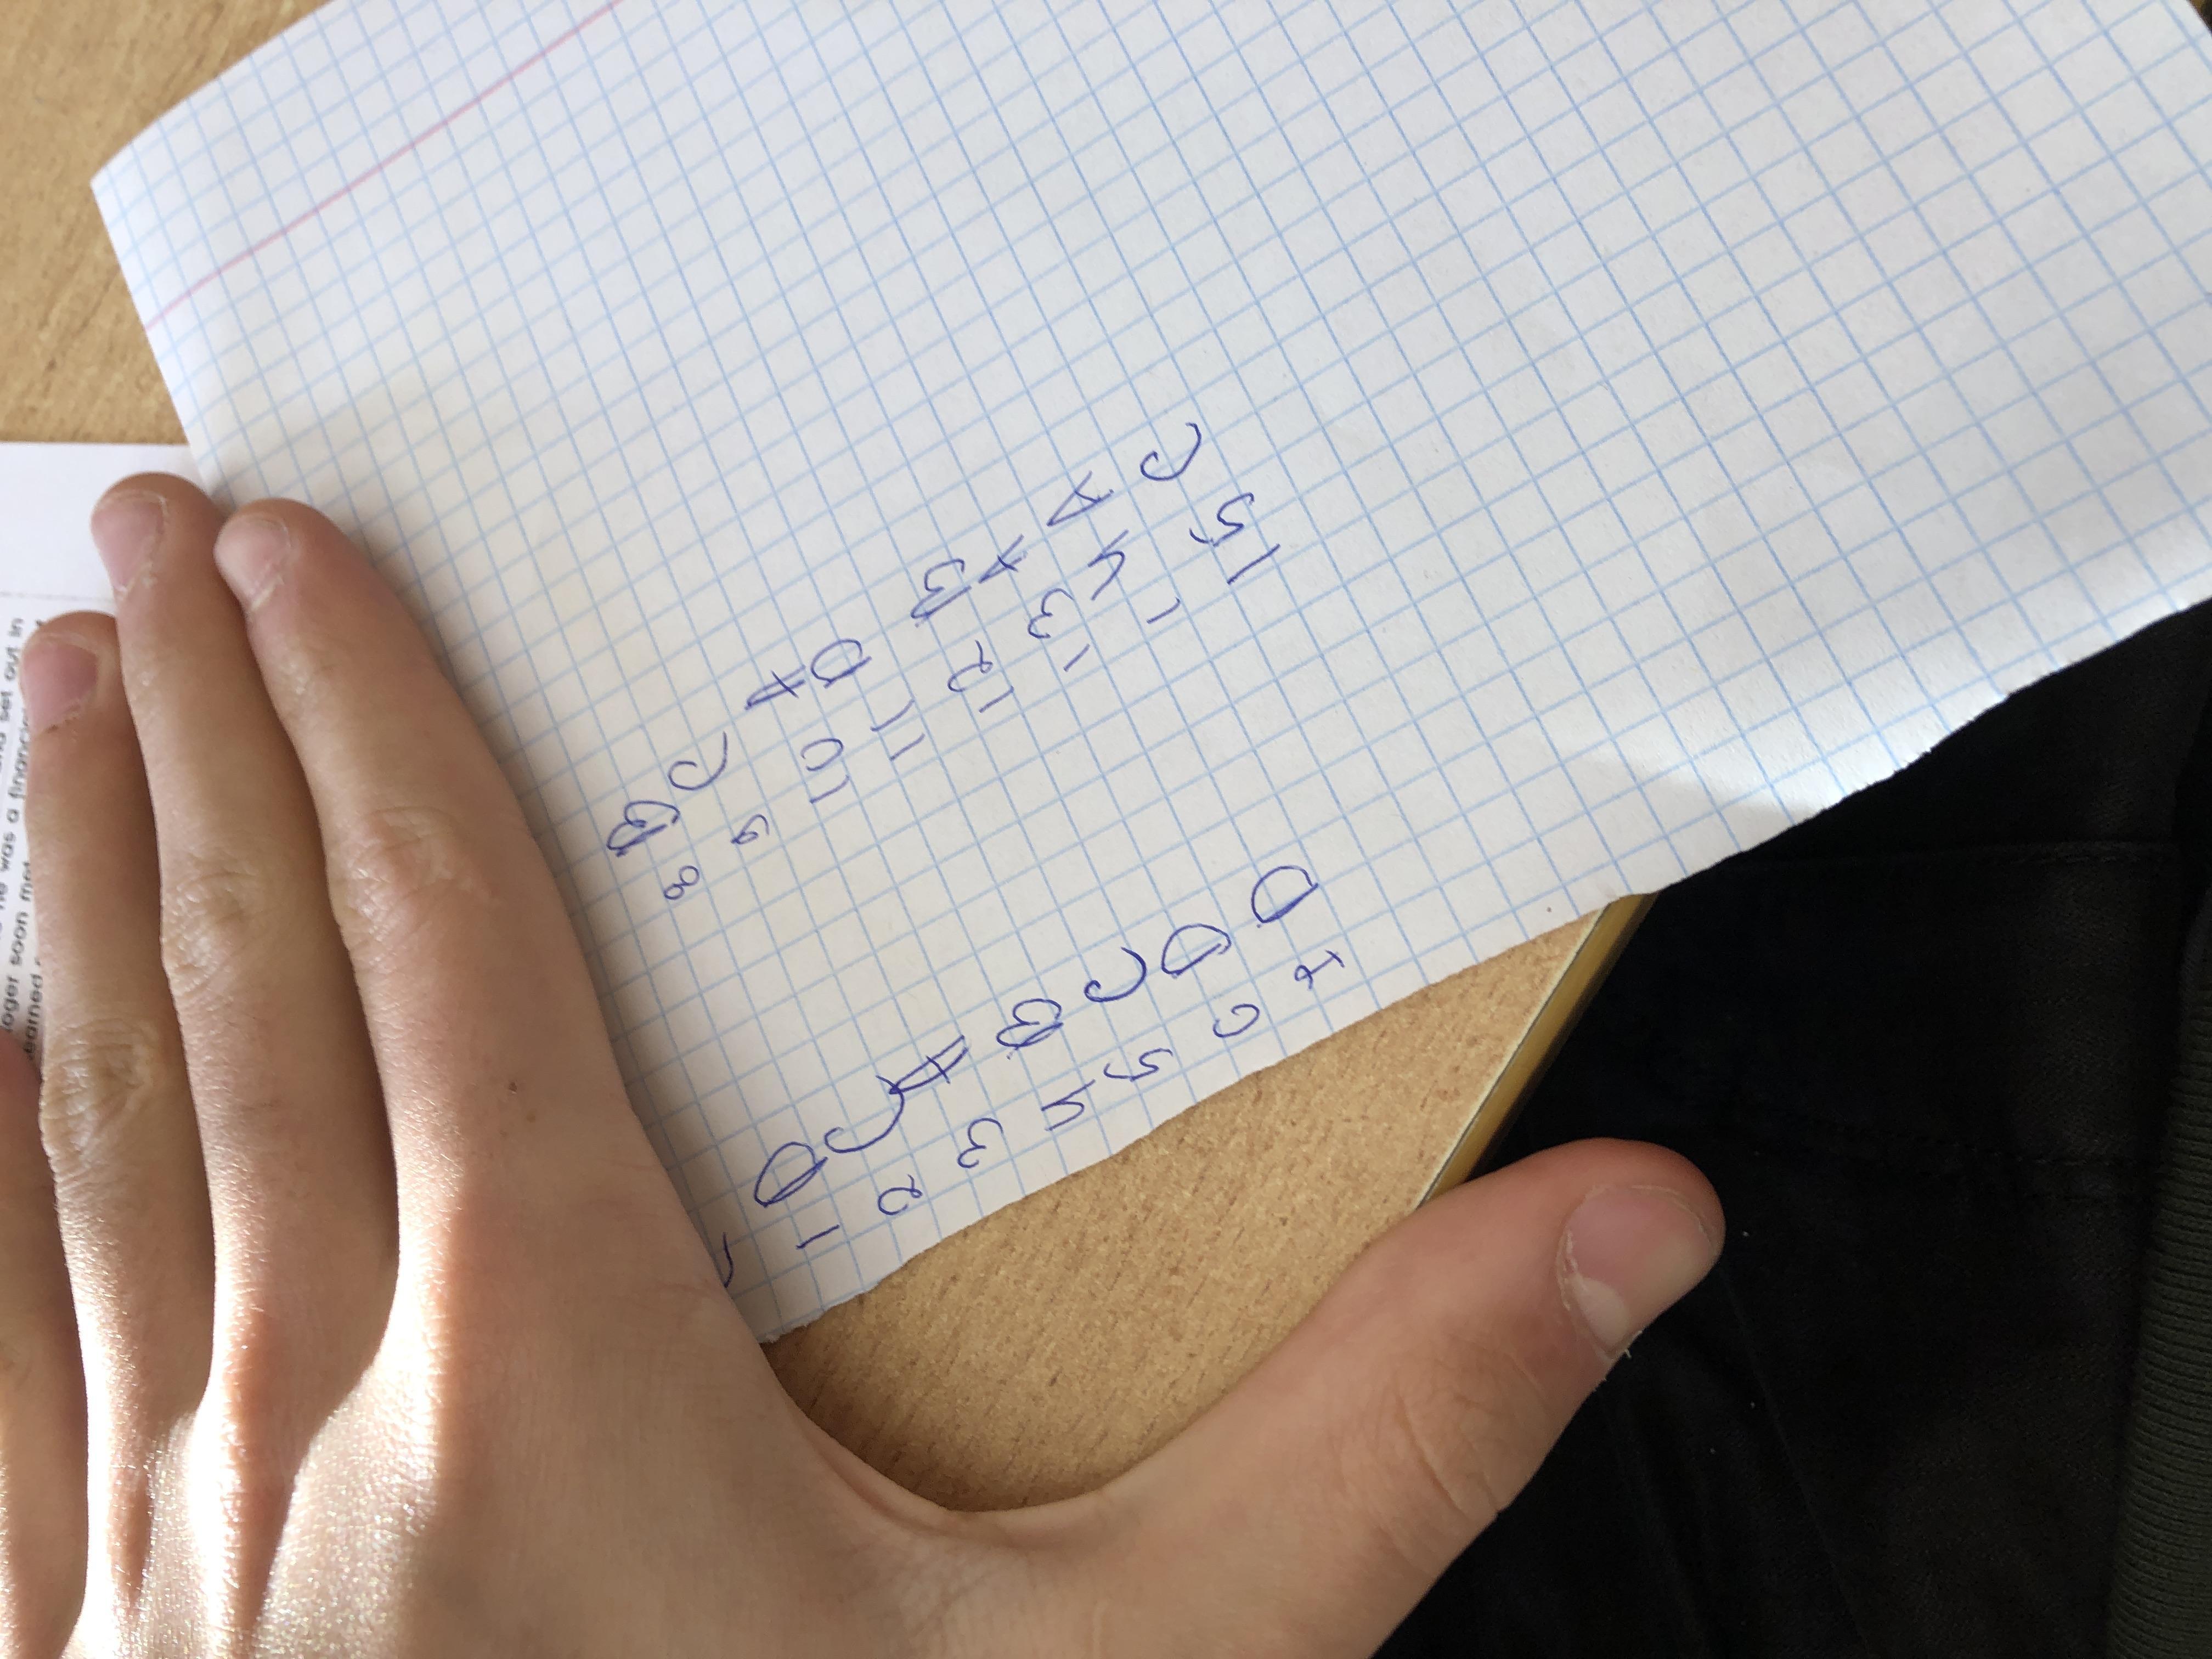 1 D
2 C
3 A
4 B
5 C
6 D
7 D
8 B
9 C
10 A
11 D
12 B
13 A
14 A
15 C
set out in
he was a
soon met